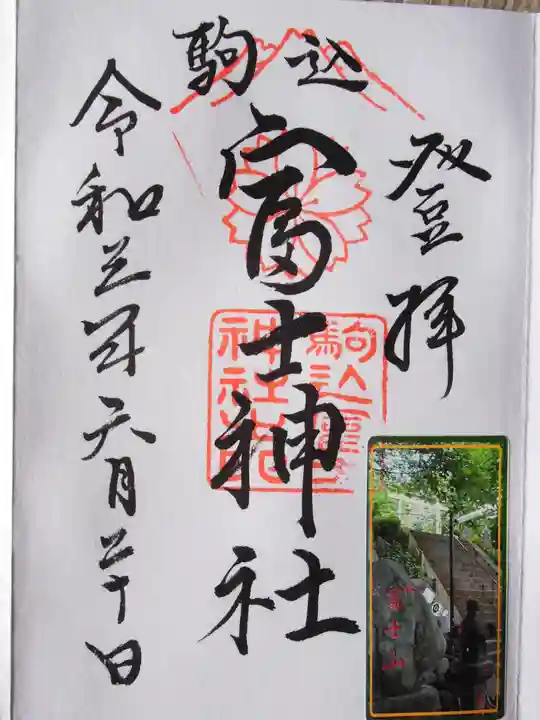 登拝
駒込
富士神社
令和三年六月二十日
駒込富士
神社
富士山